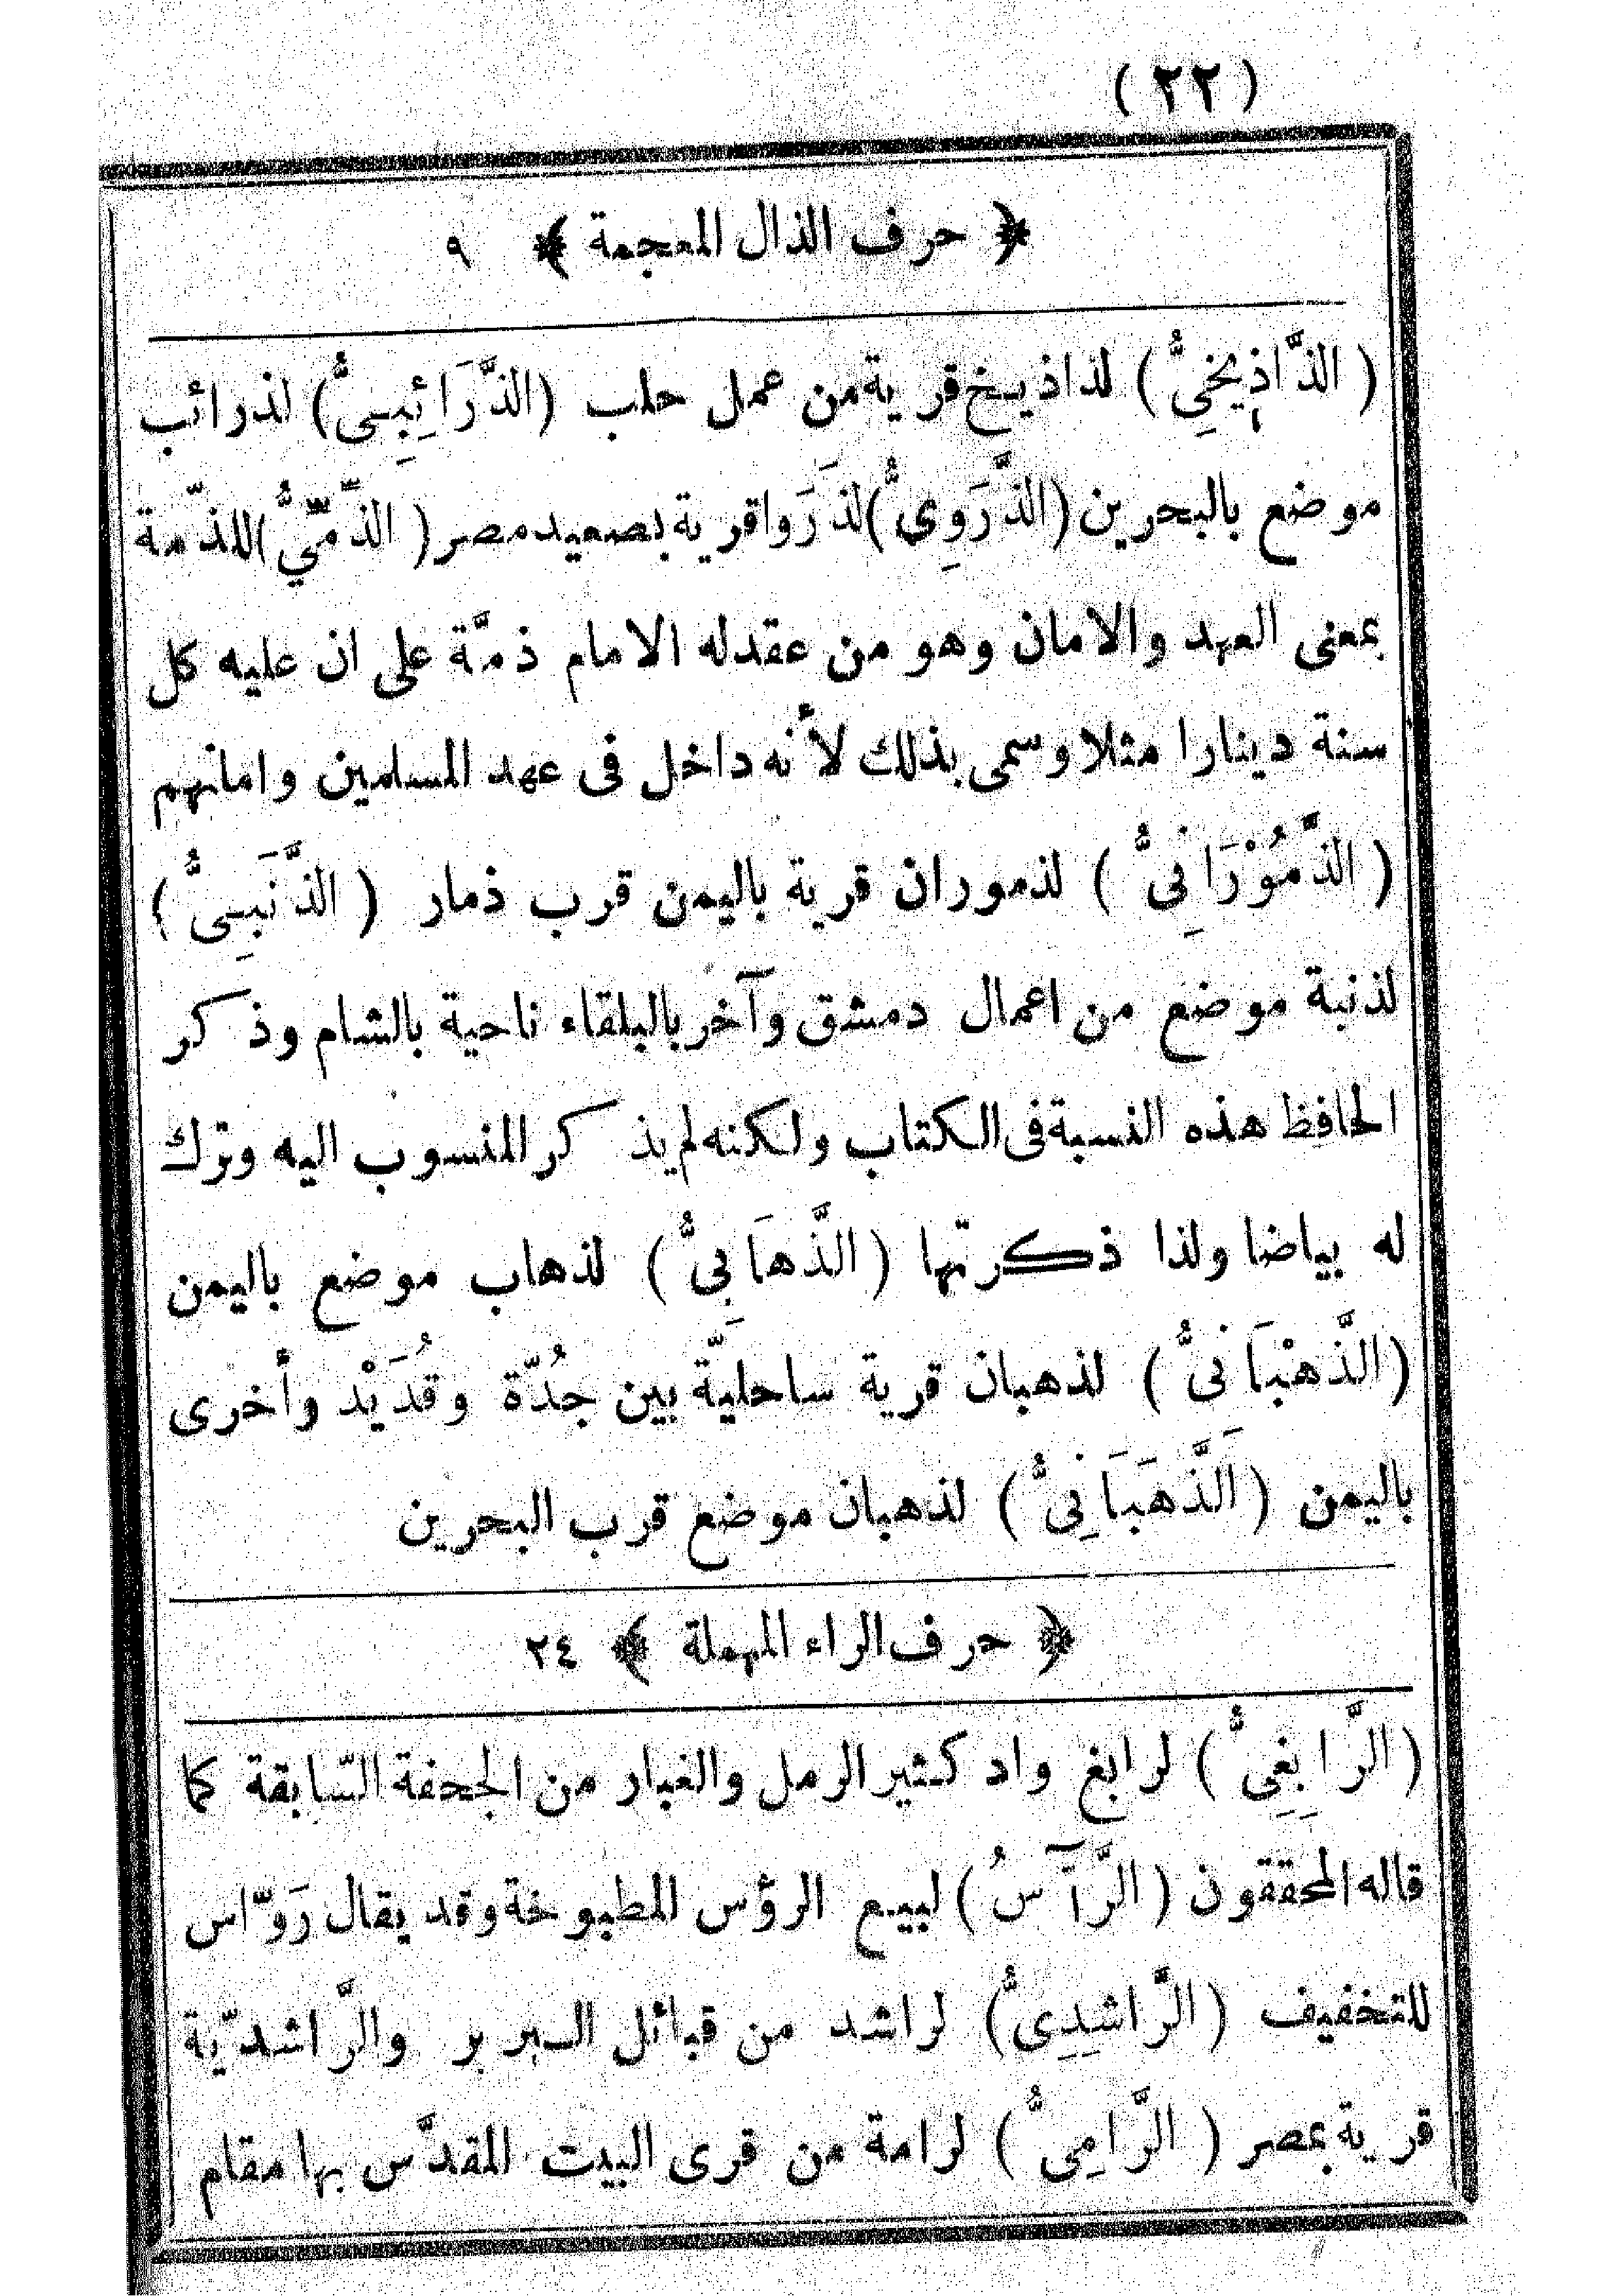 (٢٢)
﴿ حرف الذال المعجمة ﴾ ٩
( الذَّاذِيخِيُّ ) لذاذيخ قرية من عمل حلب (الذَّرَائِبِىُّ) لذرائب
موضع بالبحرين (الذَّرَوِىُّ) لذَرَوا قرية بصعيد مصر ( الذِّمِّيُّ) للذمّة
بمعنى العهد والامان وهو من عقد له الامام ذمَّة على ان عليه كل
سنة دينارا مثلا وسمى بذلك لأنه داخل فى عهد المسلمين وامانهم
( الذَّمُوْرَانِىُّ ) لذموران قرية باليمن قرب ذمار ( الذَّنَبِىُّ )
لذنبة موضع من اعمال دمشق وآخر بالبلقاء ناحية بالشام وذكر
الحافظ هذه النسبة فى الكتاب ولكنه لم يذكر المنسوب اليه وترك
له بياضا ولذا ذكرتها ( الذَّهَابِىُّ ) لذهاب موضع باليمن
(الذَّهْبَانىُّ ) لذهبان قرية ساحليّة بين جُدّة وقُدَيْد وأخرى
باليمن ( اَلذَّهَبَانِىُّ ) لذهبان موضع قرب البحرين
﴿ حرف الراء المهملة ﴾ ٢٤
( الرَّابِغِىُّ ) لرابغ واد كثير الرمل والغبار من الجحفة السّابقة كما
قاله المحققون ( الرَّآسُ ) لبيع الرؤس المطبوخة وقد يقال رَوّاس
للتخفيف ( الرَّاشِدِىُّ ) لراشد من قبائل البربر والرَّاشديّة
قرية بمصر ( الرَّامِىُّ ) لرامة من قرى البيت المقدَّس بها مقام